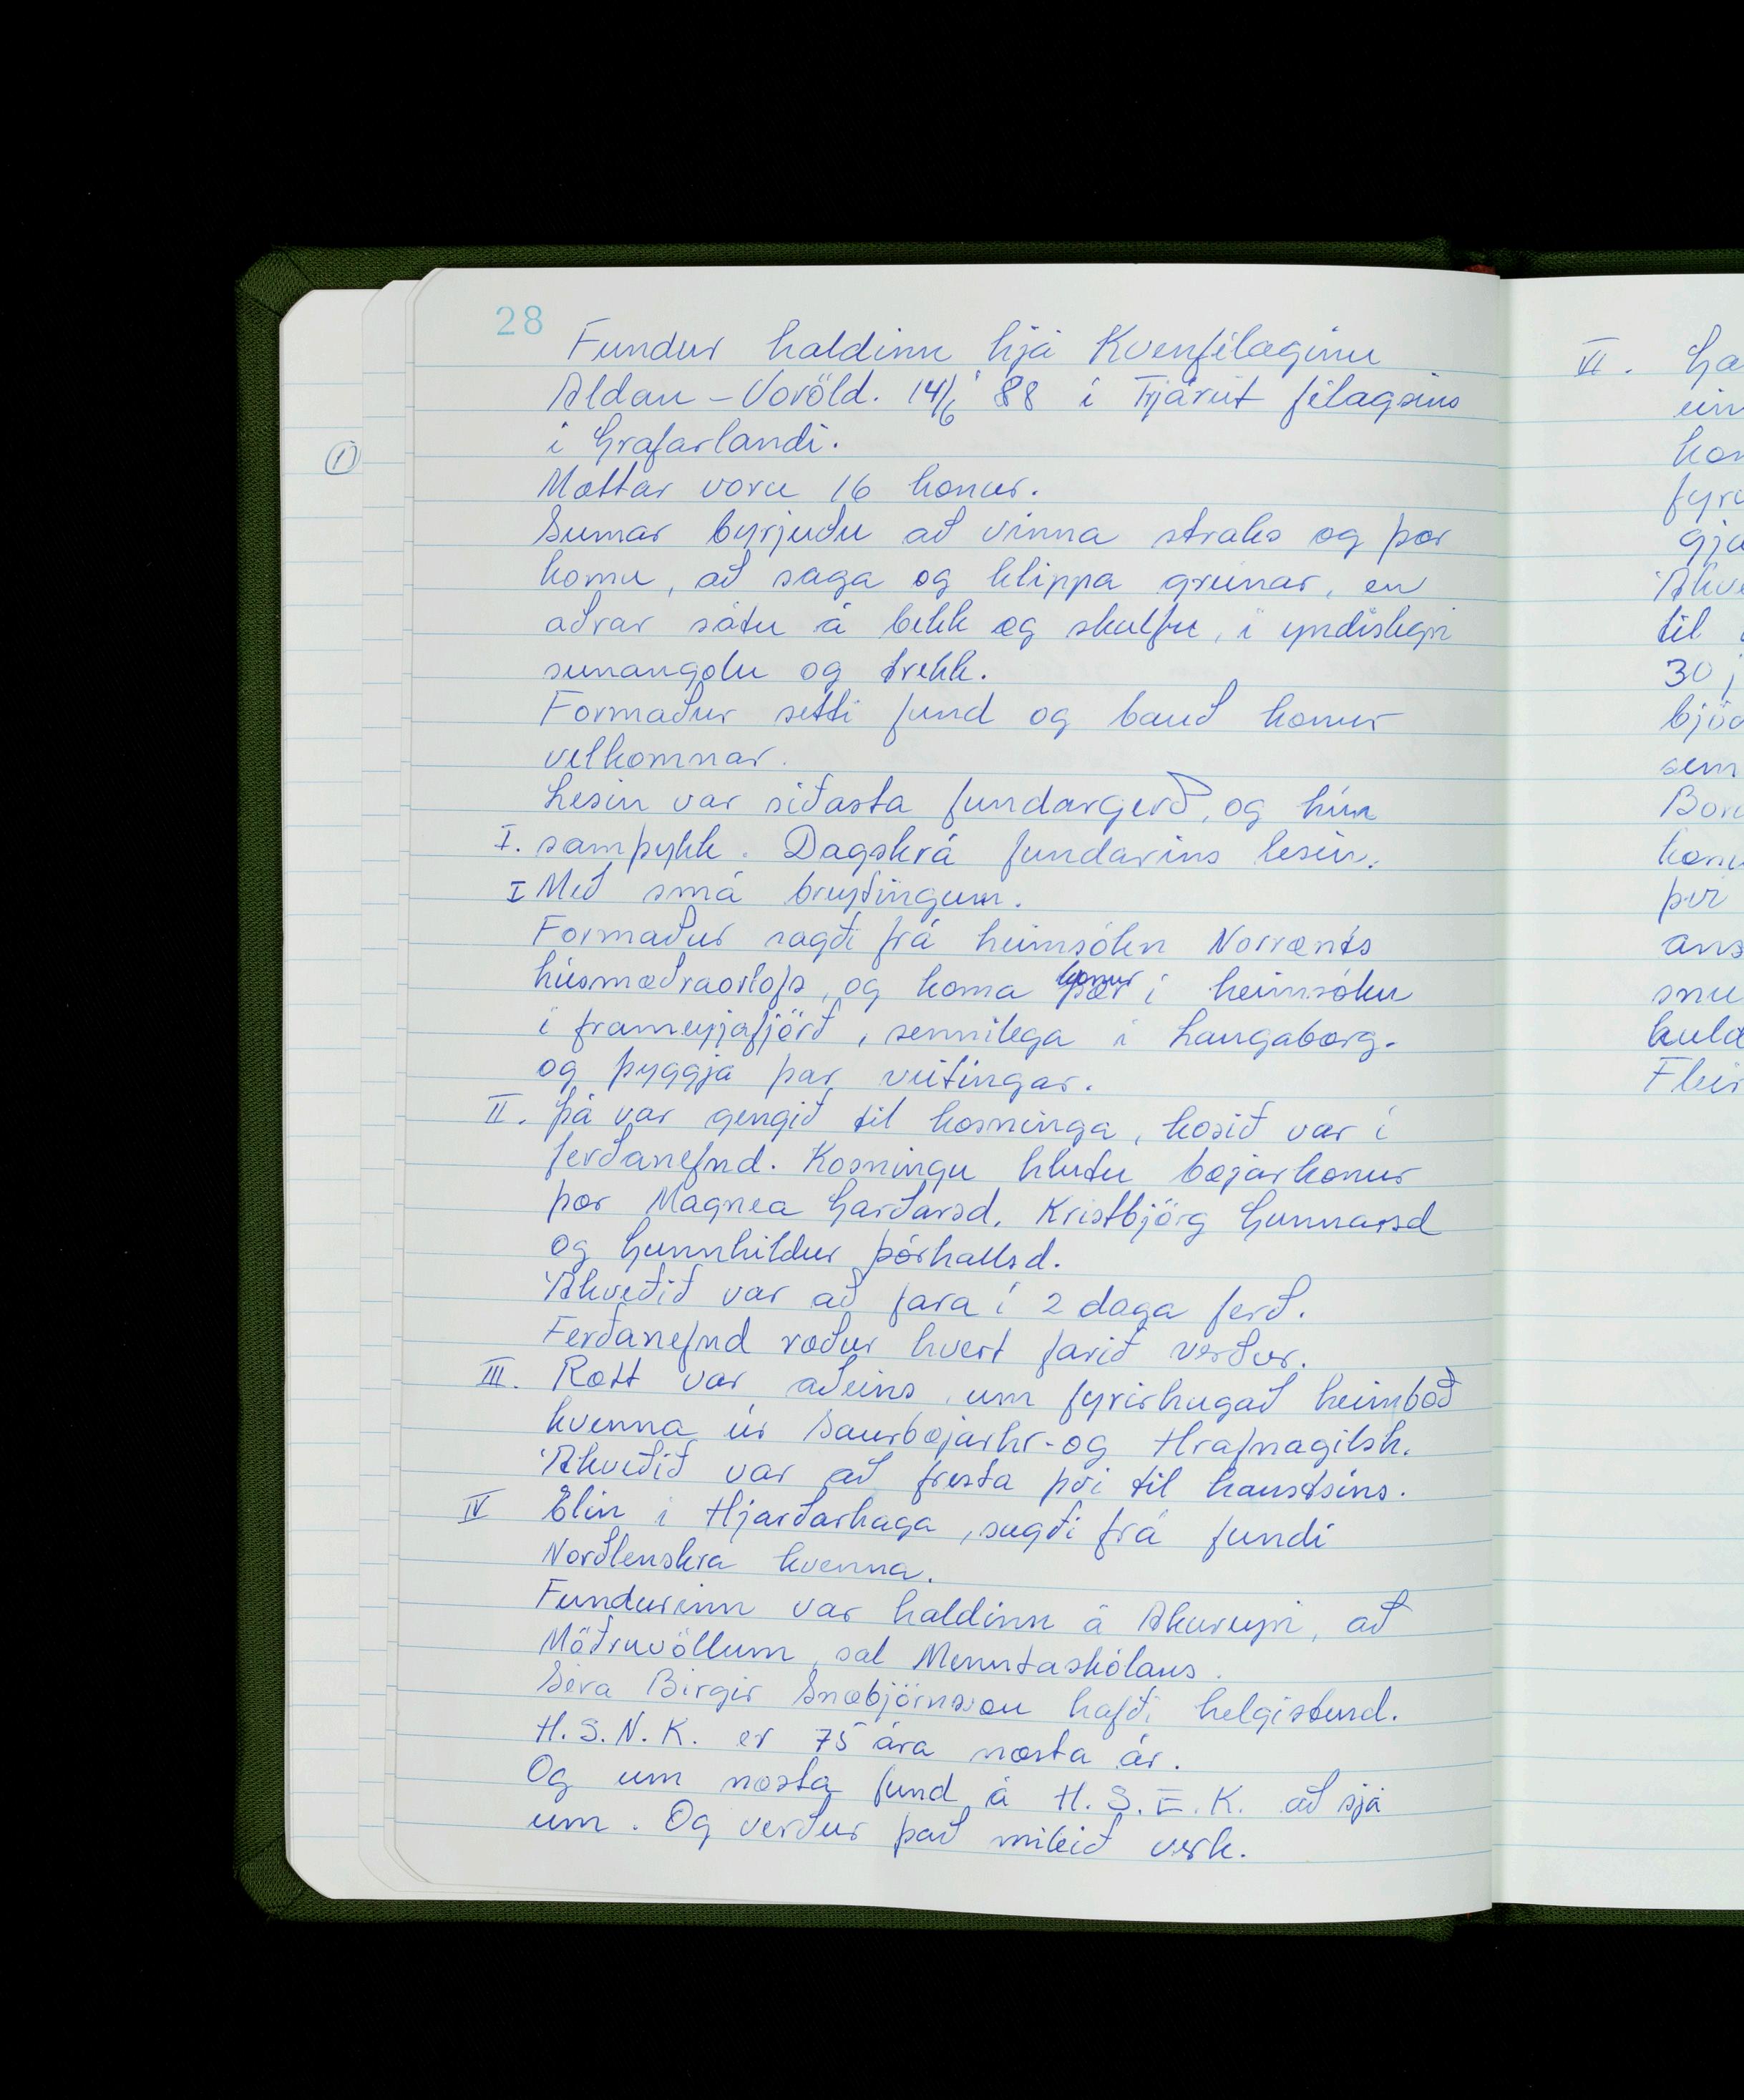 28
Fundur haldinn hjá Kvenfélaginu
Aldan - Voröld. 14/6 '88 í Trjáreit félagsins
í Grafarlandi.
Mættar voru 16 konur.
Sumar byrjuðu að vinna strax og þær
komu, að saga og klippa greinar, en
aðrar sátu á bekk og skulfu, í yndislegri
sunangolu og trekk.
Formaður setti fund og bauð konur
velkomnar.
Lesin var síðasta fundargerð, og hún
I. samþykk. Dagskrá fundarins lesin.
I Með smá breytingum.
Formaður sagði frá heimsókn Norræns
húsmæðraorlofs, og koma konur í heimsókn
í frameyjafjörð, sennilega í Laugaborg.
og þyggja þar veitingar.
II. Þá var gengið til kosninga, kosið var í
ferðanefnd. Kosningu hlutu bæjarkonur
þær Magnea Garðarsd. Kristbjörg Gunnarsd
og Gunnhildur Þórhallsd.
Ákveðið var að fara í 2 daga ferð.
Ferðanefnd ræður hvert farið verður.
III. Rætt var aðeins um fyrirhugað heimboð
kvenna úr Saurbæjarhr- og Hrafnagilsh.
Ákveðið var að fresta því til haustsins.
IV Elín í Hjarðarhaga, sagði frá fundi
Norðlenskra kvenna.
Fundurinn var haldinn á Akureyri, að
Möðruvöllum, sal Menntaskólans.
Séra Birgir Snæbjörnsson hafði helgistund.
H.S.N.K. er 75 ára næsta ár.
Og um næsta fund á H.S.E.K. að sjá
um. Og verður það mikið verk.
①
VI. Ga
ein
kon
fyri
gja
Ákve
til
30
bjóð
sem
Bor
kon
því
ans
snu
kuld
Fleir